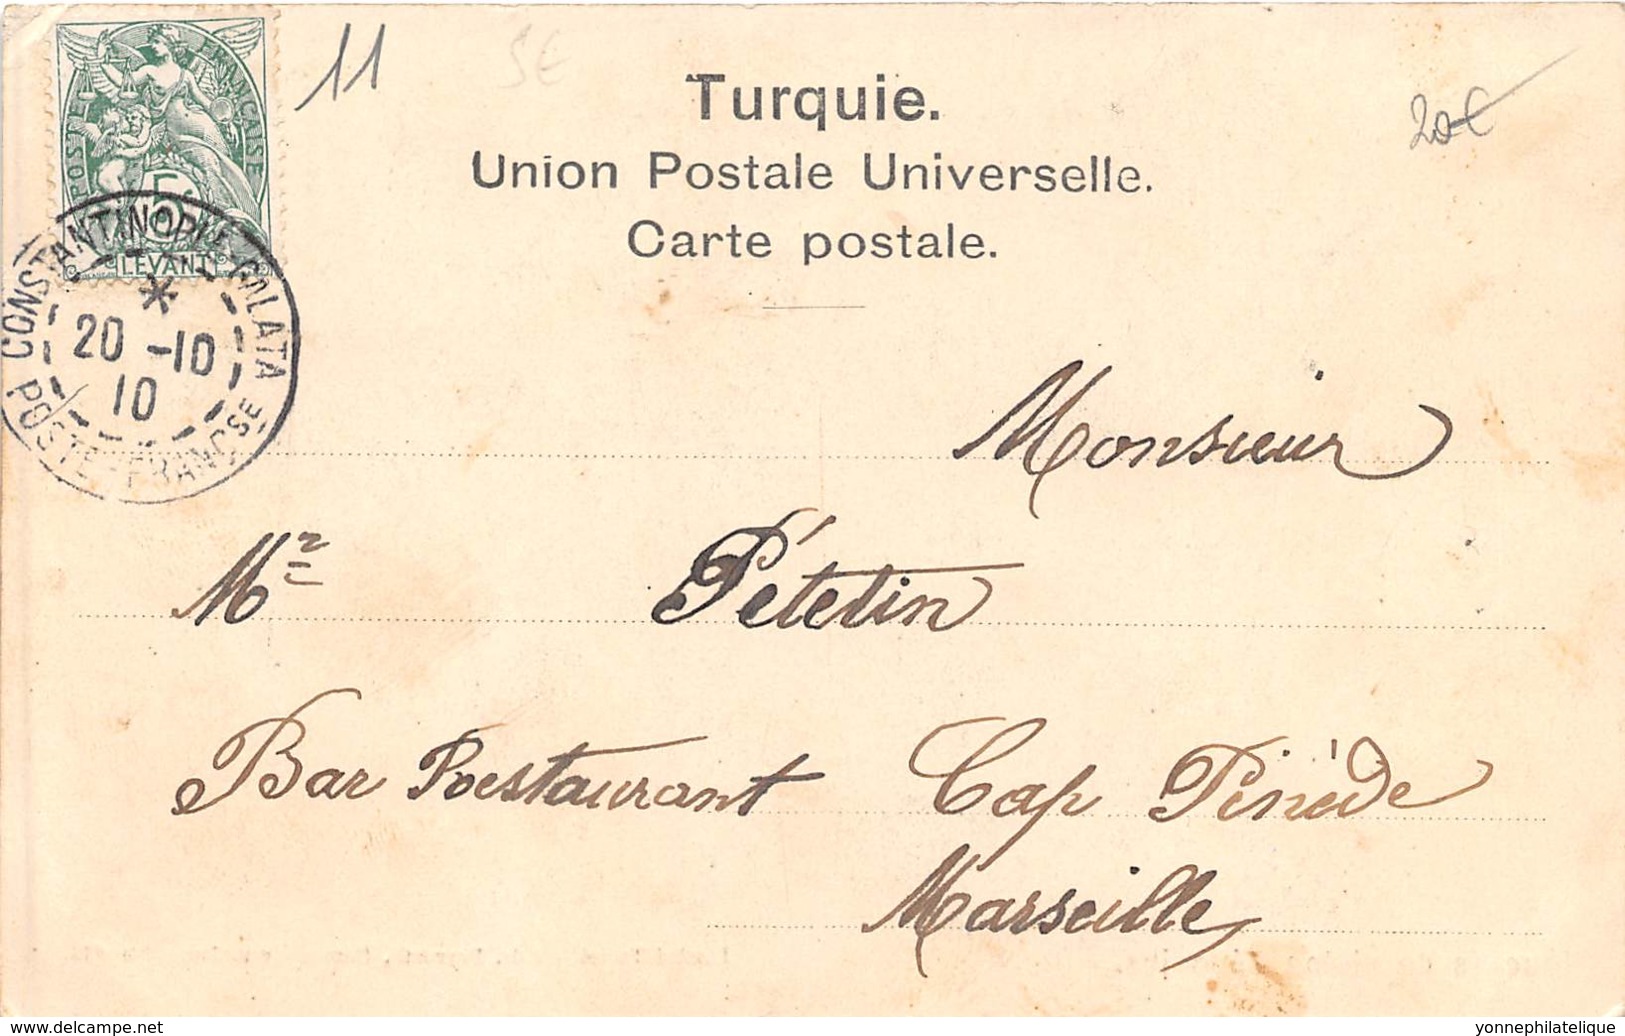 11
5€
20€
POSTE FRANÇAISE
5c
LEVANT
CONSTANTINOPLE GALATA
20 -10
10
POSTE FRANÇSE
Turquie.
Union Postale Universelle.
Carte postale.
Monsieur
Mr Pételin
Bar Restaurant Cap Pinède
Marseille
yonnephilatelique @ www.delcampe.net